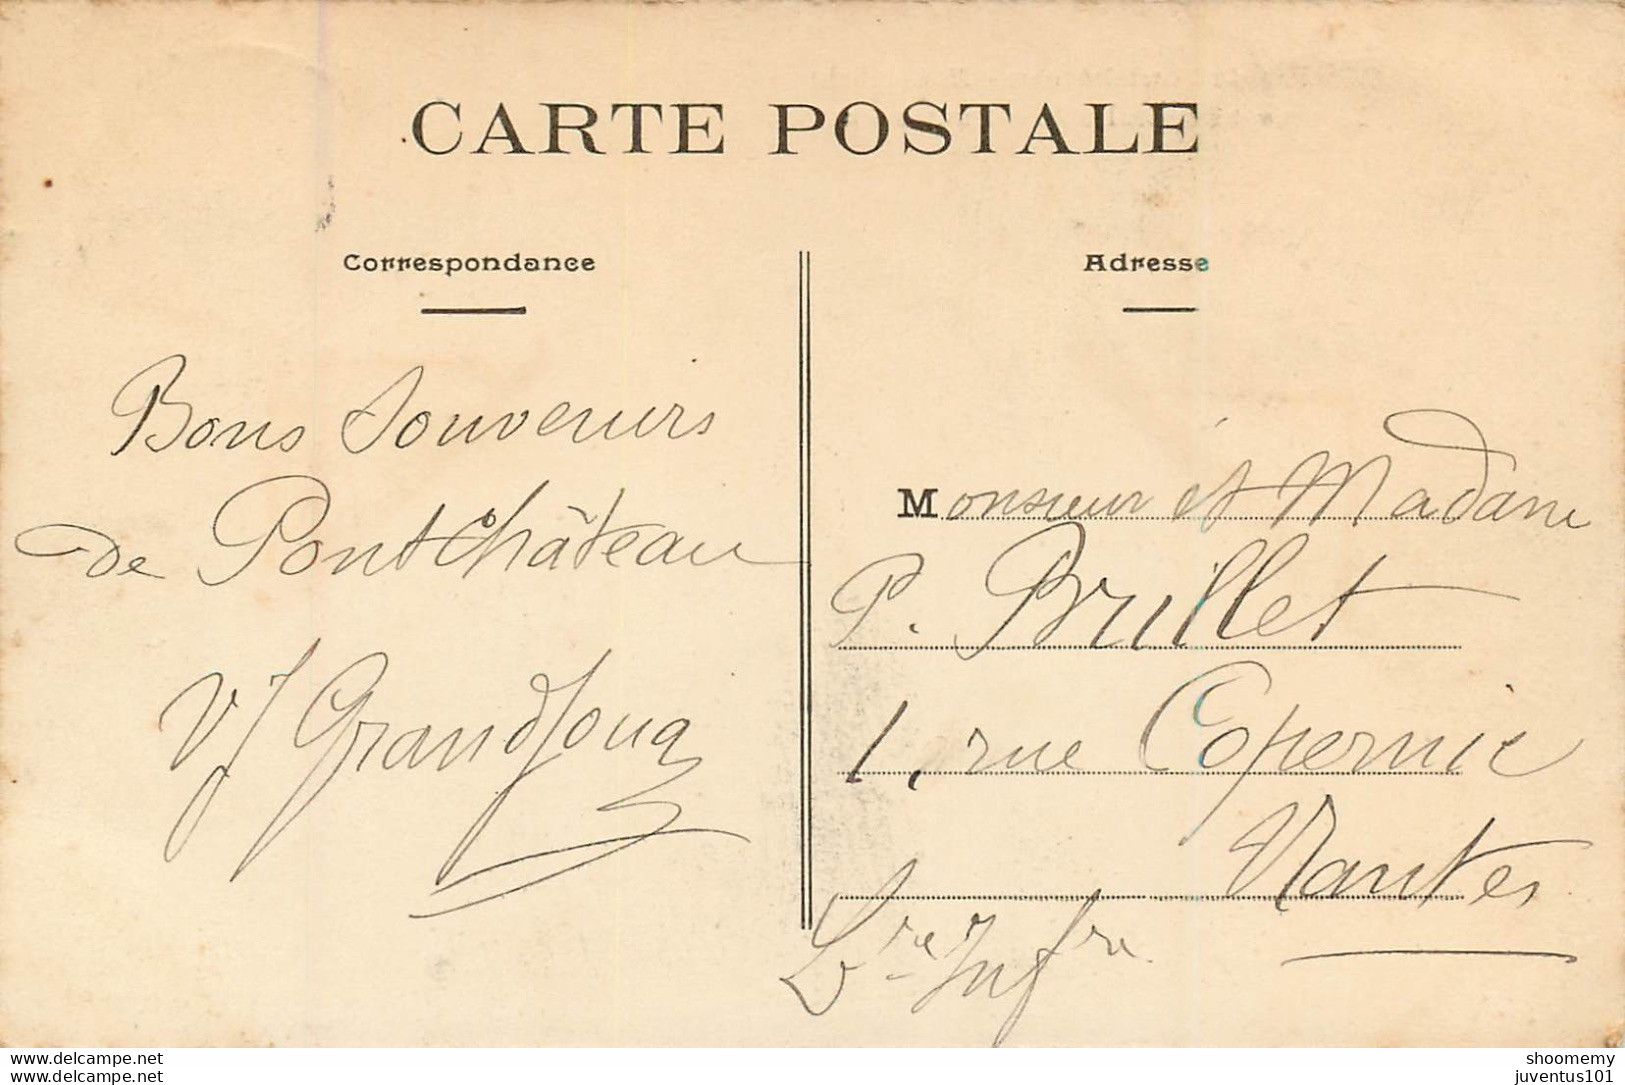 CARTE POSTALE
Correspondance
Adresse
Bons Souvenirs
de Pontchâteau
VJ Grandjouan
Monsieur et Madame
P. Brillet
1, rue Copernic
Nantes
Lre Infre
www.delcampe.net
www.delcampe.net
shoomemy
juventus101